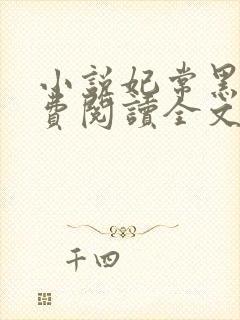 小說妃常黑
費閱讀全文
千四